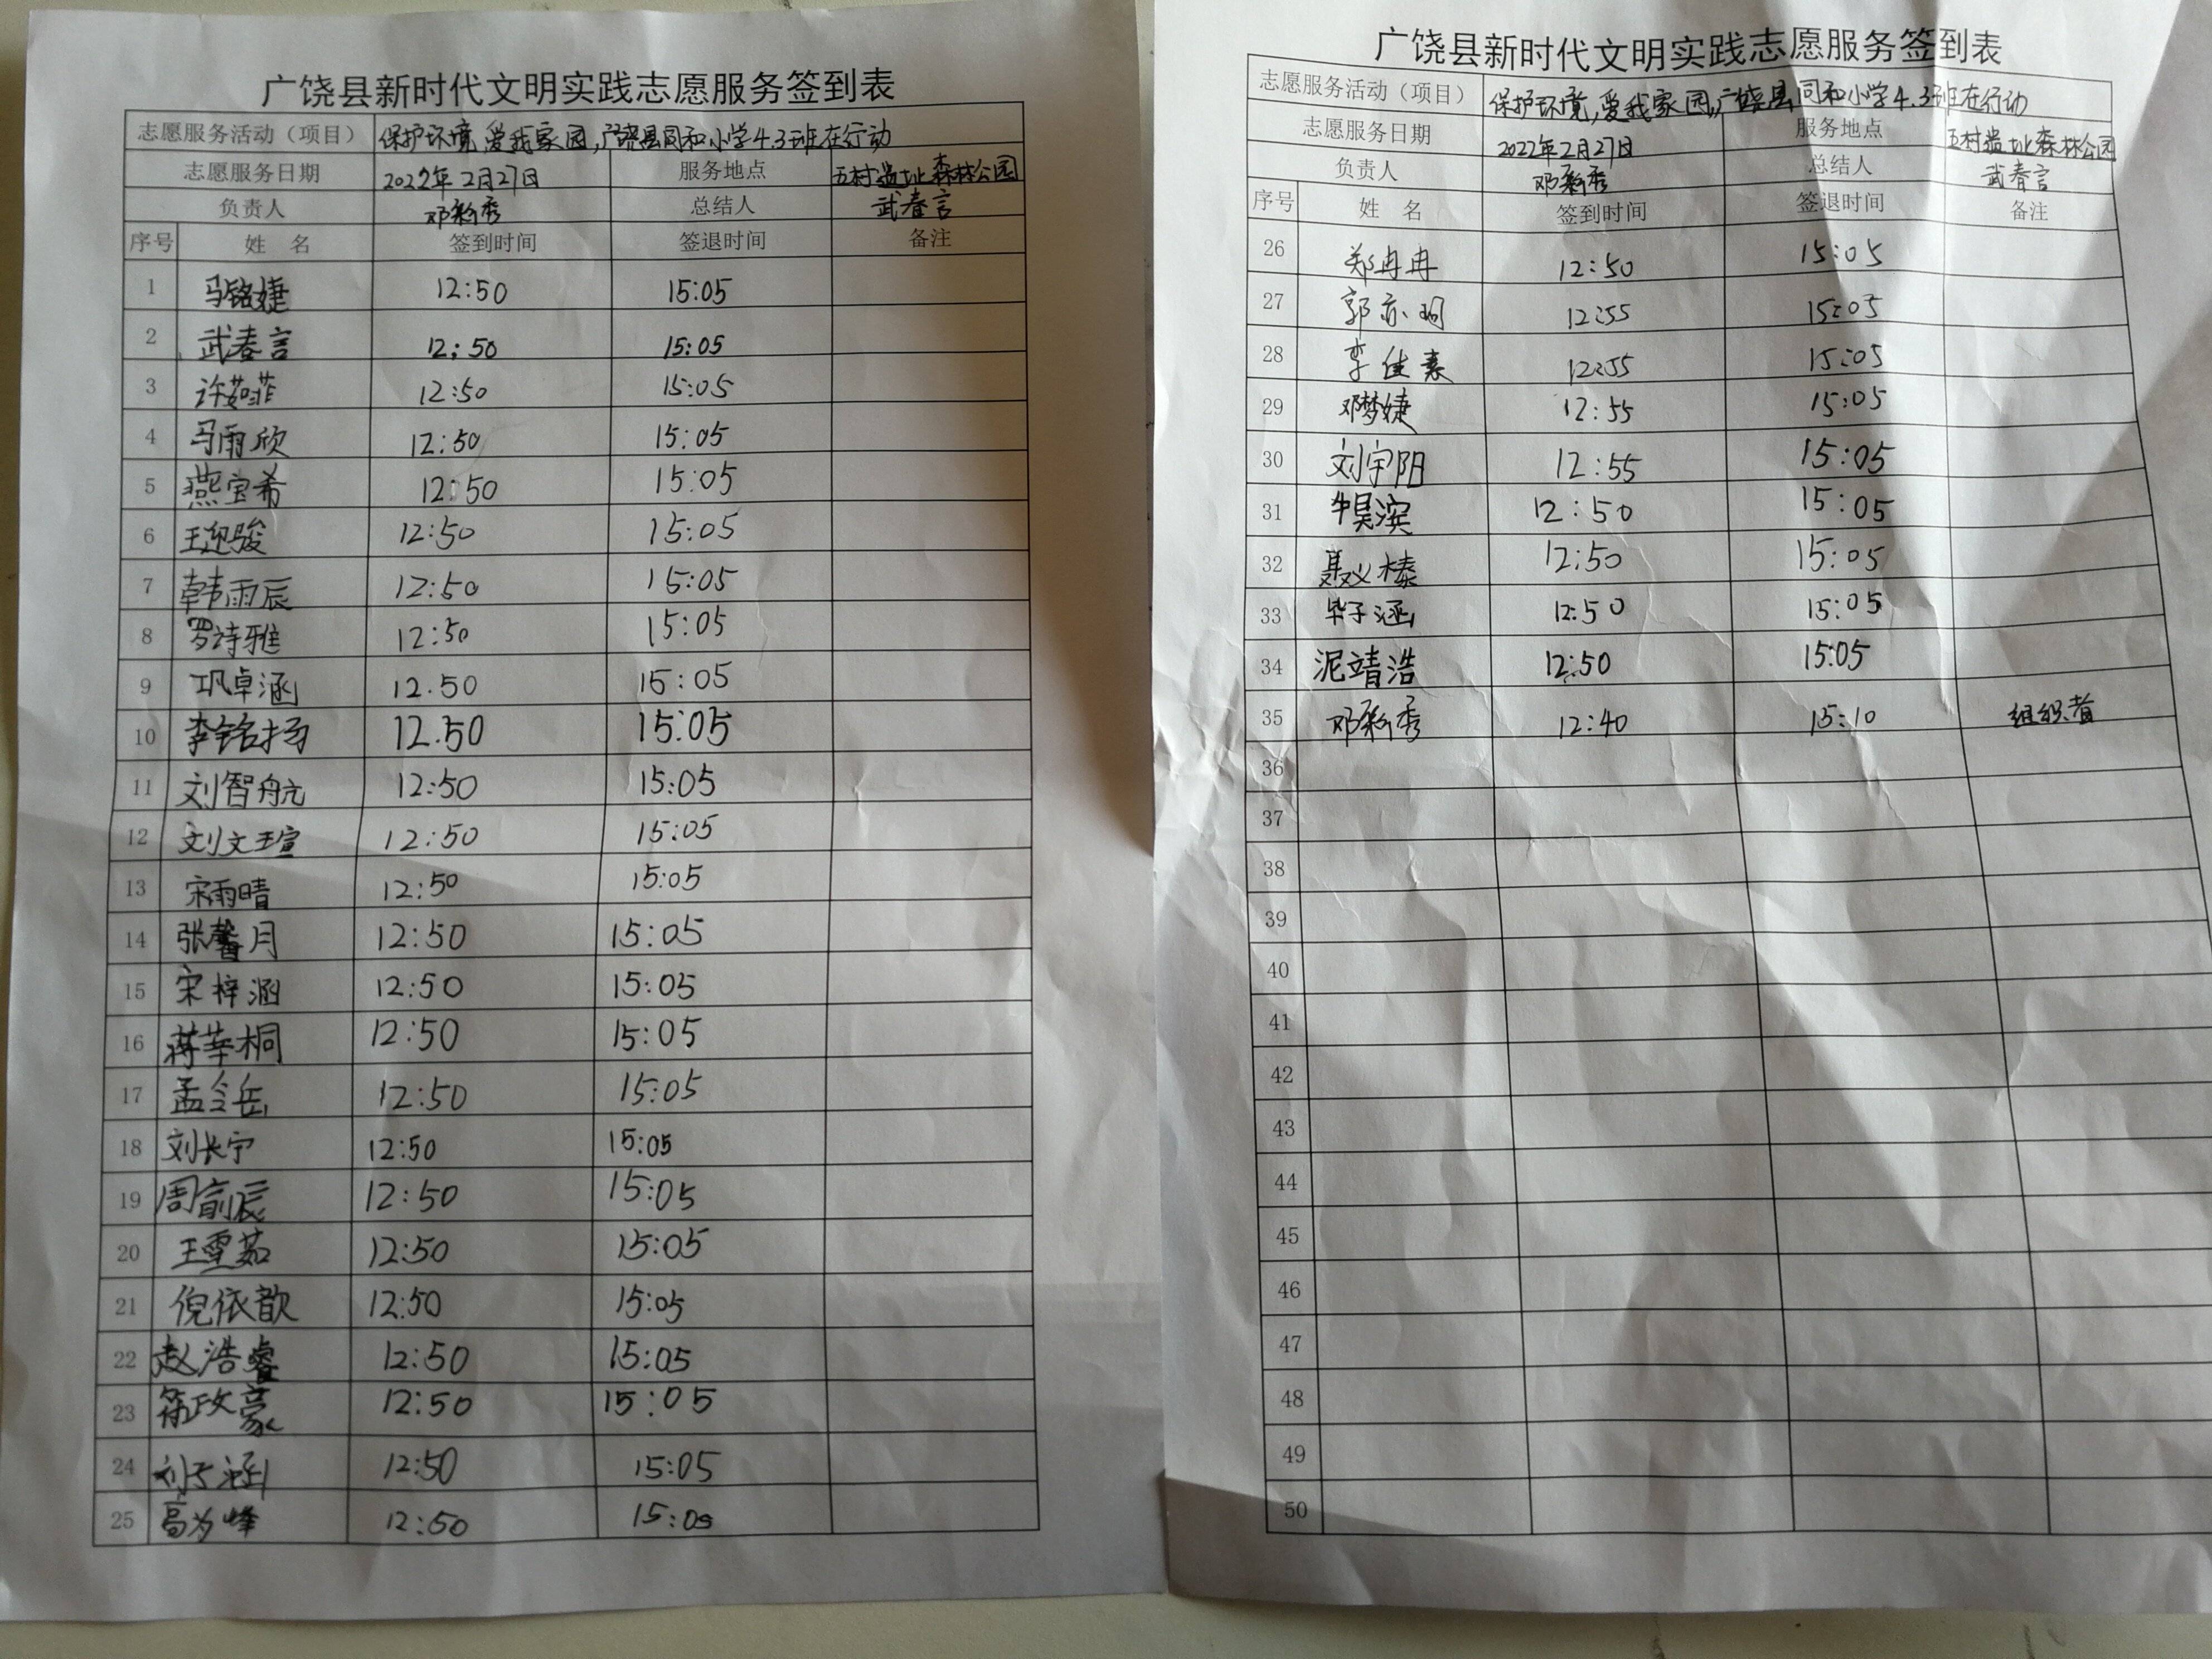 广饶县新时代文明实践志愿服务签到表
志愿服务活动（项目） 保护环境,爱我家园,广饶县同和小学4.3班在行动
志愿服务日期 2022年2月27日 服务地点 五村遗址森林公园
负责人 邓新秀 总结人 武春言
序号 姓 名 签到时间 签退时间 备注
1 马铭婕 12:50 15:05
2 武春言 12:50 15:05
3 许茹菲 12:50 15:05
4 马雨欣 12:50 15:05
5 燕宝希 12:50 15:05
6 王迎骏 12:50 15:05
7 韩雨辰 12:50 15:05
8 罗诗雅 12:50 15:05
9 巩卓涵 12.50 15:05
10 李铭扬 12.50 15:05
11 刘智航 12:50 15:05
12 刘文瑄 12:50 15:05
13 宋雨晴 12:50 15:05
14 张馨月 12:50 15:05
15 宋梓涵 12:50 15:05
16 蒋莘桐 12:50 15:05
17 孟令岳 12:50 15:05
18 刘长宁 12:50 15:05
19 周俞辰 12:50 15:05
20 王雪茹 12:50 15:05
21 倪依歆 12:50 15:05
22 赵浩睿 12:50 15:05
23 政豪 12:50 15:05
24 刘子涵 12:50 15:05
25 高为峰 12:50 15:05
广饶县新时代文明实践志愿服务签到表
志愿服务活动（项目） 保护环境,爱我家园,广饶县同和小学4.3班在行动
志愿服务日期 2022年2月27日 服务地点 五村遗址森林公园
负责人 邓新秀 总结人 武春言
序号 姓 名 签到时间 签退时间 备注
26 郑冉冉 12:50 15:05
27 郭亦珂 12:55 15:05
28 李佳 12:55 15:05
29 邓梦婕 12:55 15:05
30 刘宇阳 12:55 15:05
31 牛昊滨 12:50 15:05
32 聂义榛 12:50 15:05
33 毕子涵 12:50 15:05
34 泥靖浩 12:50 15:05
35 邓新秀 12:40 15:10 组织者
36
37
38
39
40
41
42
43
44
45
46
47
48
49
50